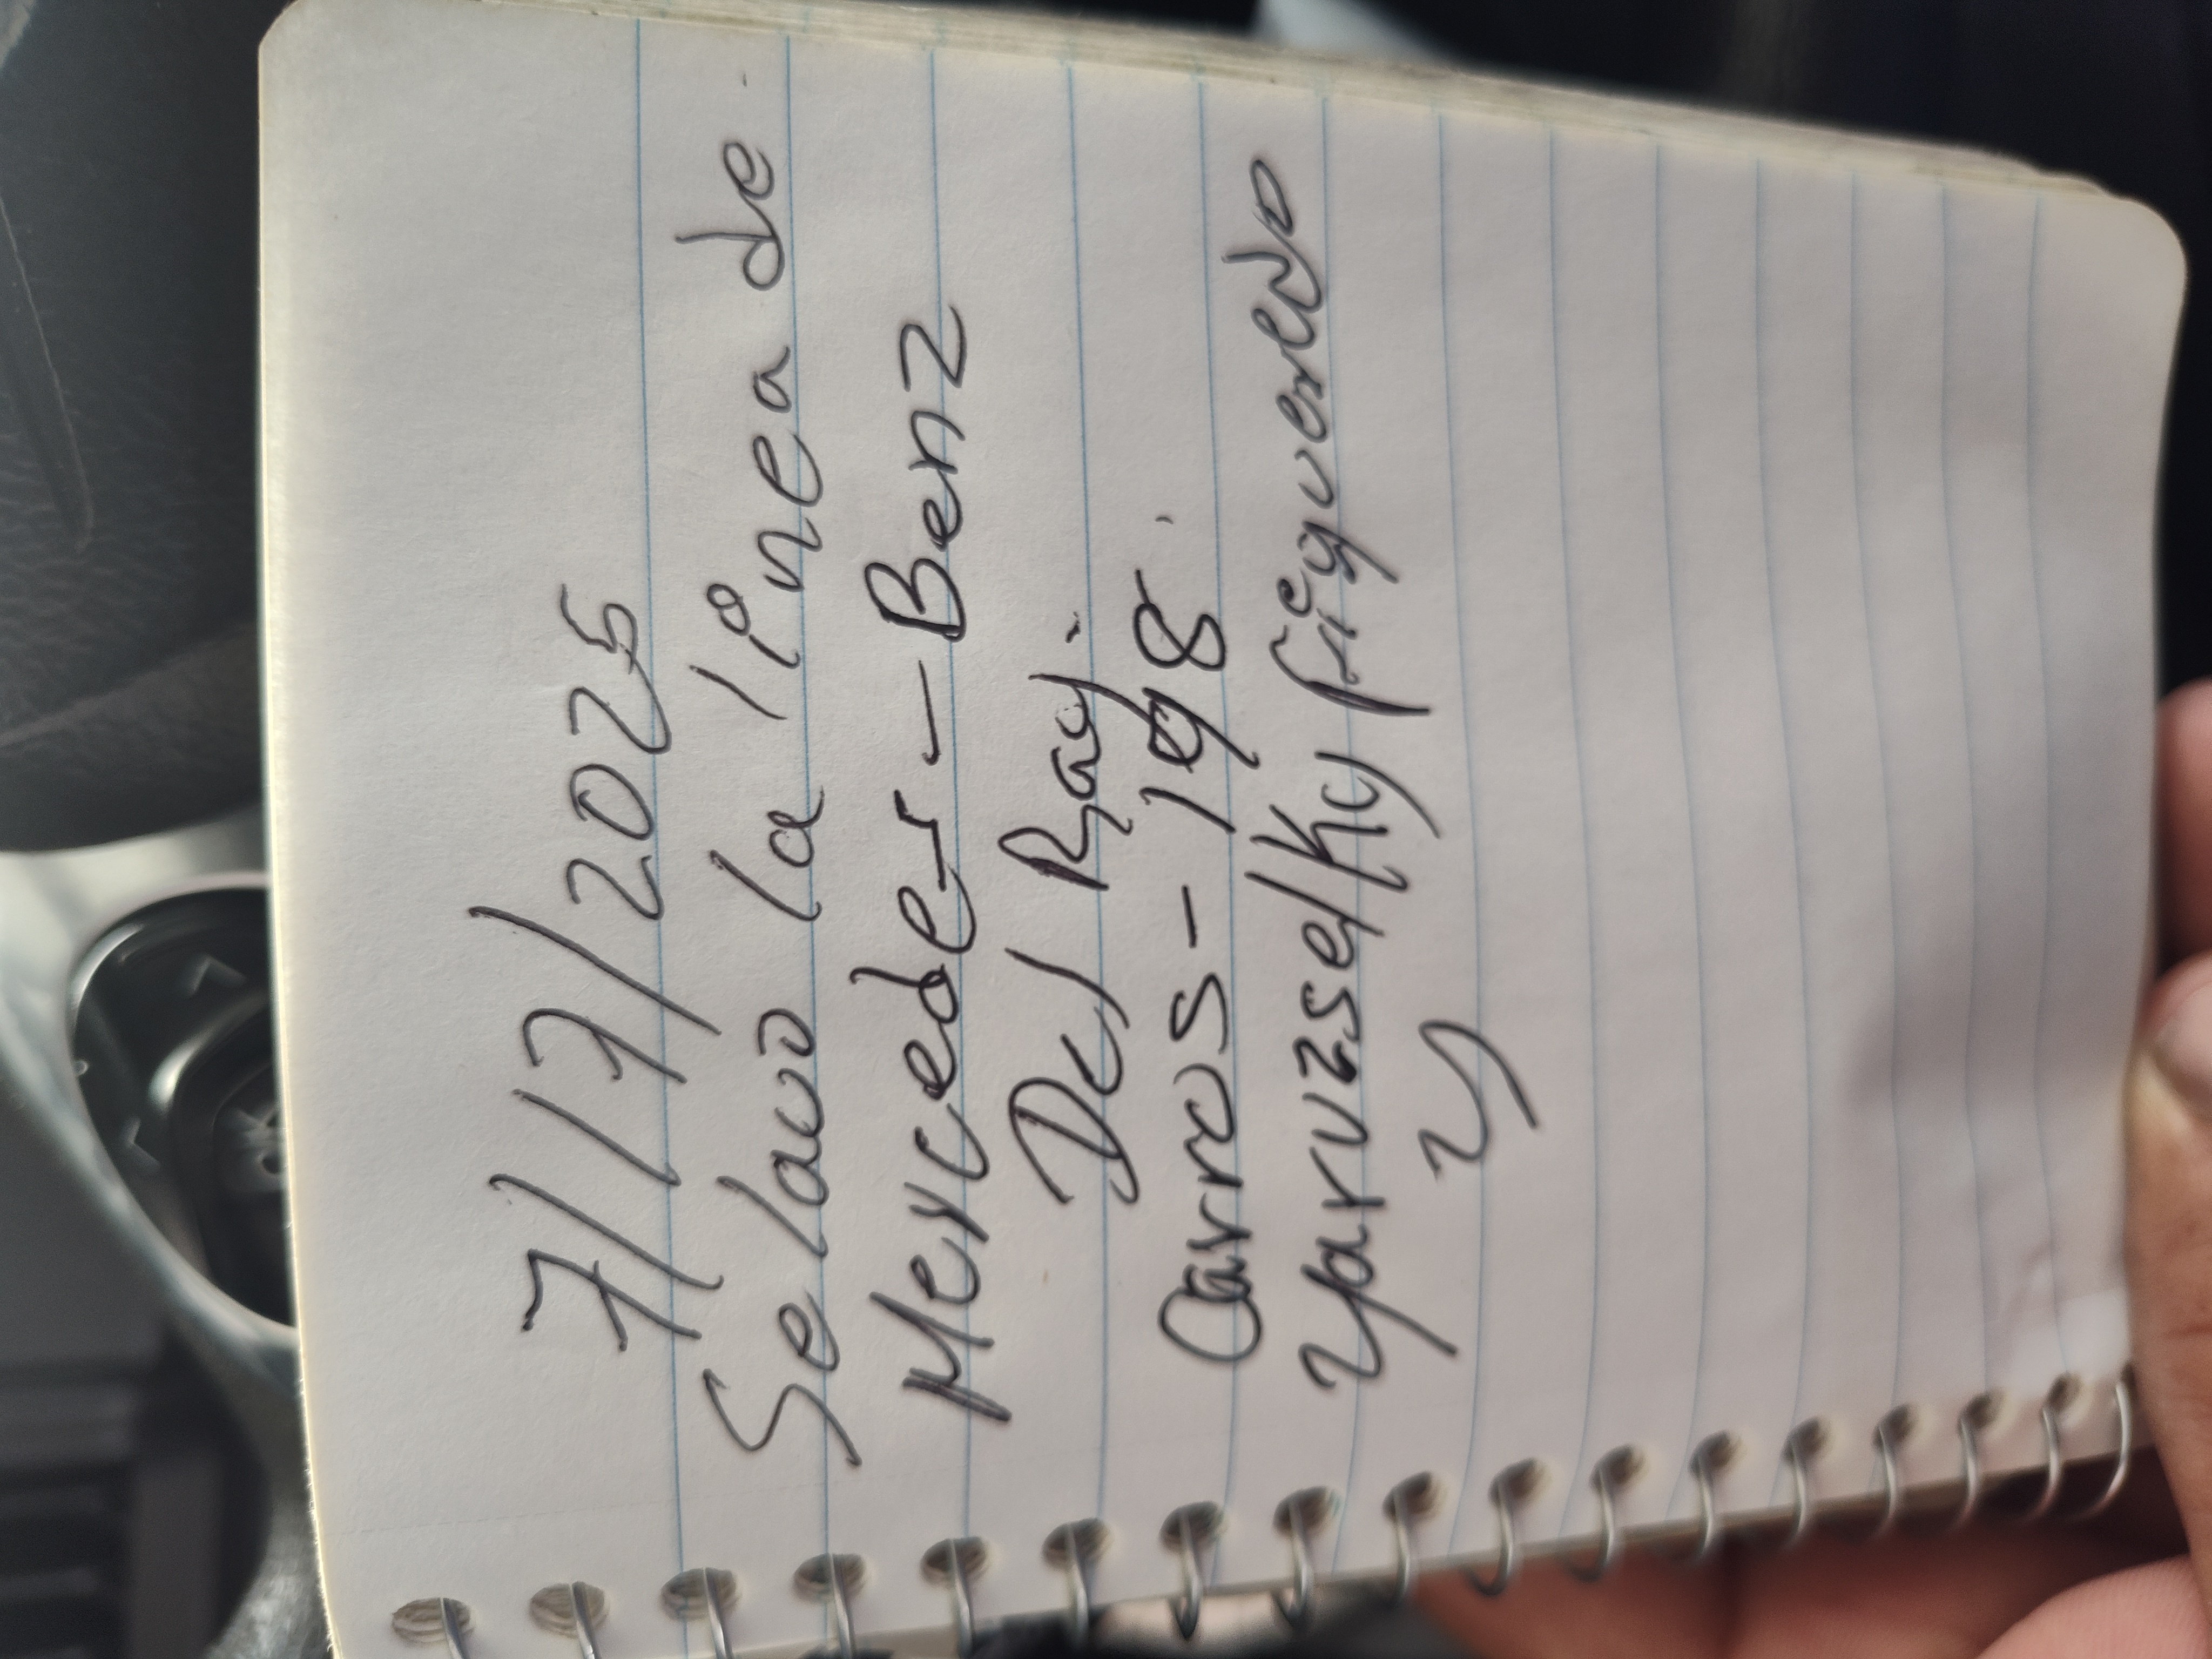 7/17/2025
Se lavo la linea de
Mercedes-Benz
Del Ray.
Carros - 198.
Yaruzselky figueredo
y